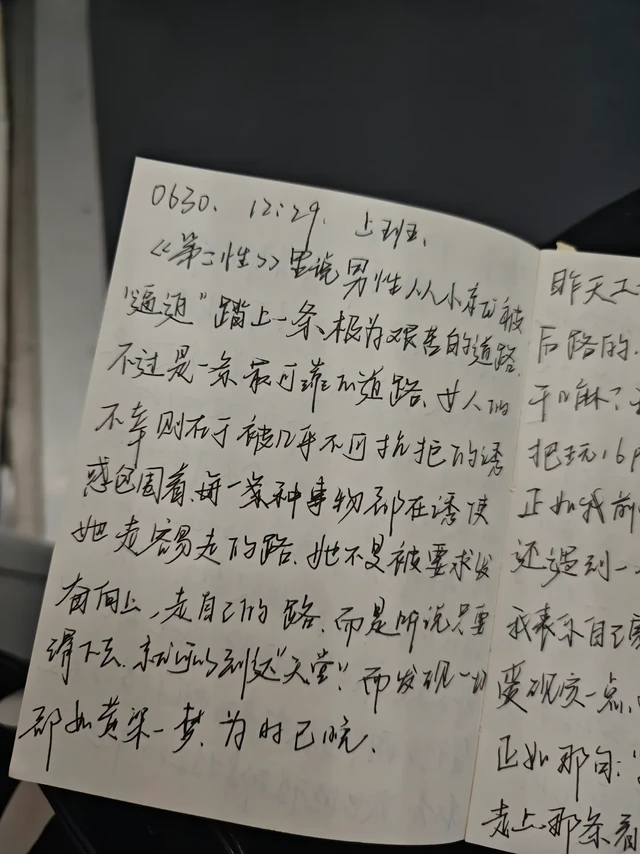 0630. 12:29. 上班.
《第二性》里说男性从小就被
"逼迫"踏上一条极为艰苦的道路.
不过是一条最可靠的道路. 女人的
不幸则在于被几乎不可抗拒的诱
惑包围着. 每一种事物都在诱使
她走容易走的路. 她不是被要求发
奋向上, 走自己的路. 而是听说只要
滑下去. 就可以到达"天堂". 而发现一切
都如黄粱一梦. 为时已晚.
昨天工
后路的.
干嘛?
把玩16
正如我前
还遇到一
我表示自己
变现实一点.
正如那句:
走上那条看